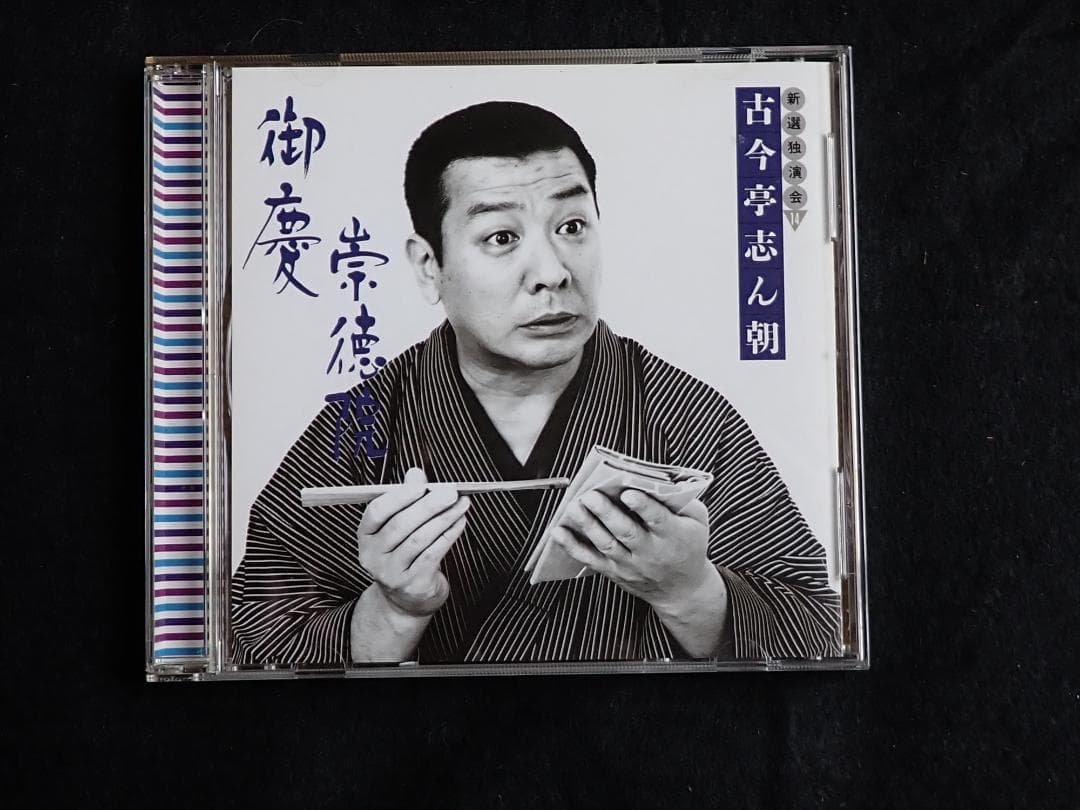 新選独演会14
古今亭志ん朝
御慶
崇徳院